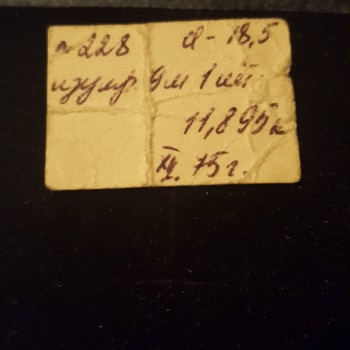 п 228 d - 18,5
изумр. 9м 1 шт.
11,895к
XII. 75г.